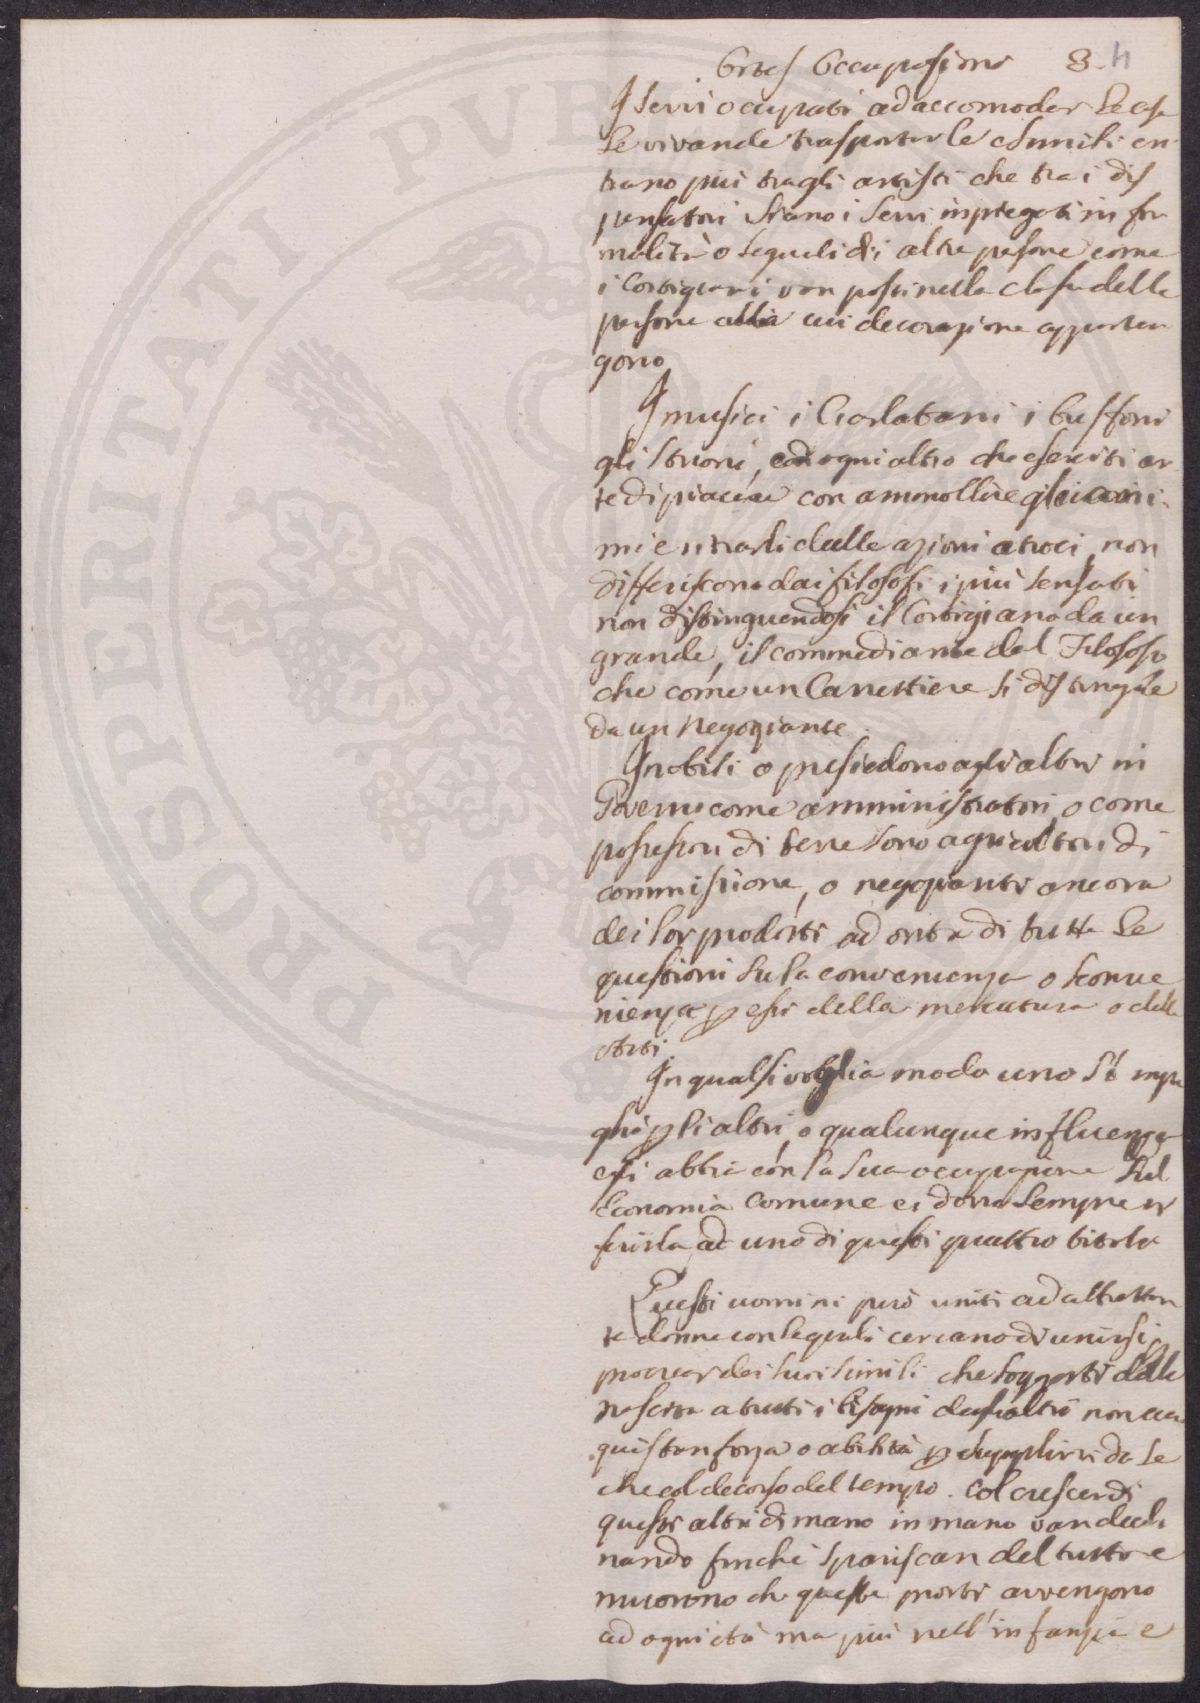 Occupazione 8. 4
I servi occupati ad accomodar le case
le vivande trasportarle e simili en
trano più tra gli artisti che tra i dis
pensatori siano i servi inpiegati in for
malità o sequeli di altre persone come
i Cortigiani van posti nella classe delle
persone alla cui decorazione apparten
gono
I musici i Ciarlatani i buffoni
gli strioni, ed ogni altro che eserciti ar
te di piacere con ammollire gli ani
mi e ritrarli dalle azioni atroci, non
differiscono dai filosofi i più sensati
non distinguendosi il Cortigiano da un
grande, il commediante dal Filosofo
che come un Canestriere si distingue
da un Negoziante
I nobili o presiedono agli altri in
Governi come amministratori, o come
possessori di terre sono agricoltori di
commissione, o negozianti ancora
dei lor prodotti ad onta di tutte le
questioni su la convenienza o sconve
nienza per essi della mercatura o delle
arti.
In qualsivoglia modo uno s'impie
ghi per li altri, o qualunque influenza
egli abbia con la sua occupazione sul
Economia comune ei dovrà sempre re
ferirla ad uno di questi quattro titoli
Questi uomini però uniti ad altrettan
te donne con le quali cercano di unirsi
procrear dei suoi simili che soggetti dalla
nascita a tutti i bisogni degli altri non ac
quistan forza o abilità per supplirvi da se
che col decorso del tempo. Col crescer di
questi altri di mano in mano van decli
nando finchè spariscan del tutto e
muorono che queste morti avvengono
ad ogni età ma più nell'infanzia e
PROSPERITATI PVB